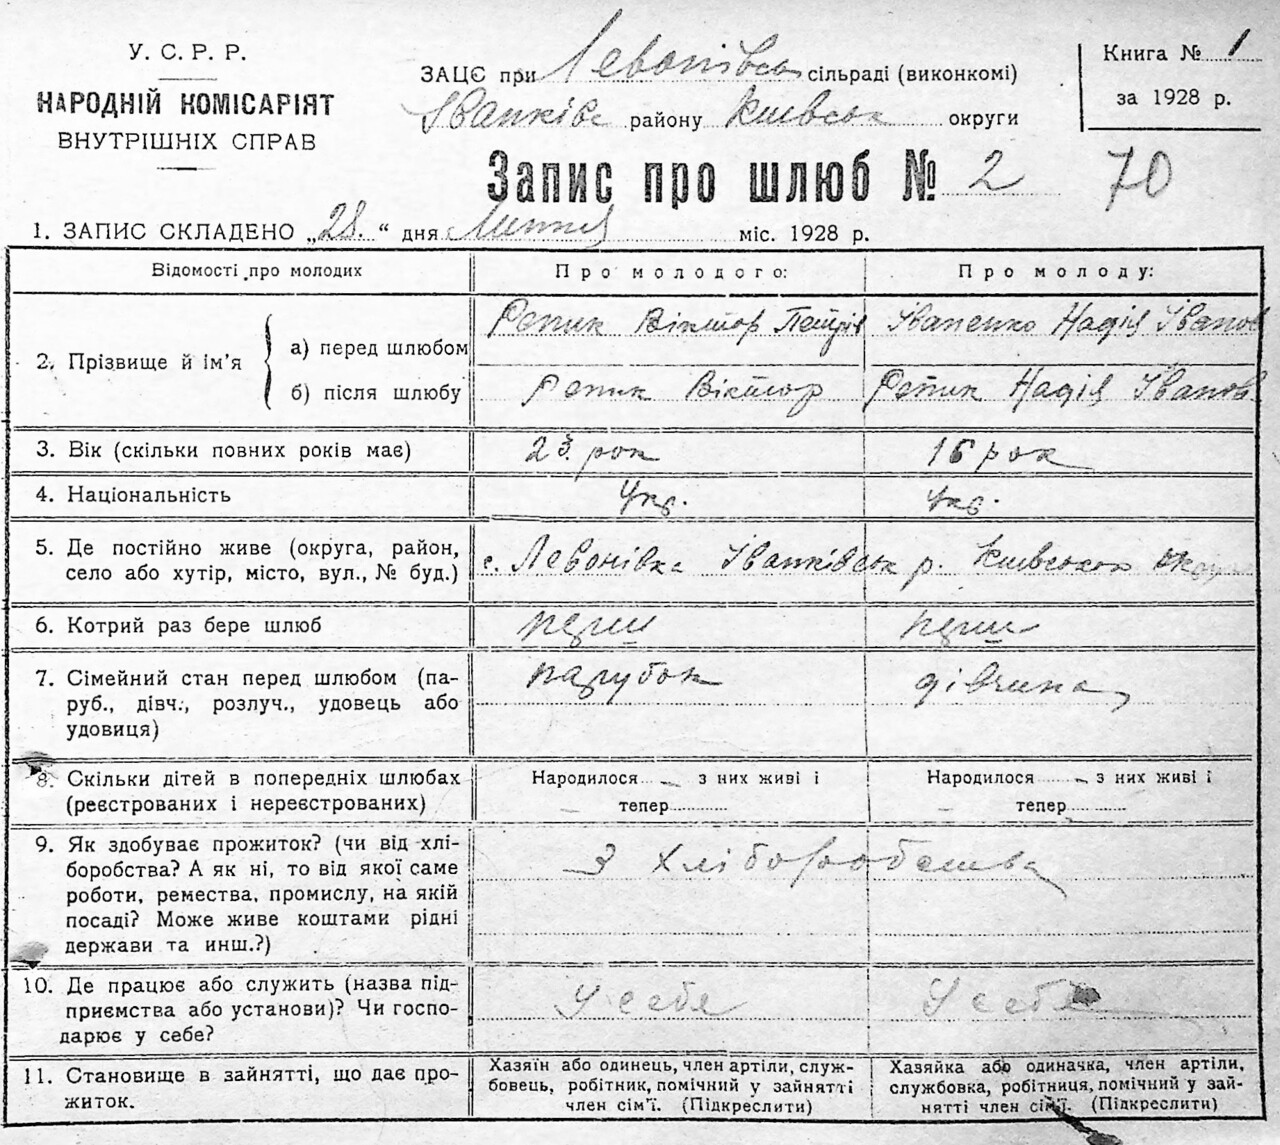 У. С. Р. Р.
НАРОДНІЙ КОМІСАРІЯТ
ВНУТРІШНІХ СПРАВ
ЗАЦС при Левонівськ сільраді (виконкомі)
Іванківс району Київськ округи
Книга № 1
за 1928 р.
Запис про шлюб № 2
70
1. ЗАПИС СКЛАДЕНО „28." дня Липня міс. 1928 р.
Відомості про молодих Про молодого: Про молоду:
2. Прізвище й ім'я
а) перед шлюбом Репик Віктор Петрів Іваненко Надія Іванов
б) після шлюбу Репик Віктор Репик Надія Іванов
3. Вік (скільки повних років має) рок рок
4. Національність Укр. Укр.
5. Де постійно живе (округа, район,
село або хутір, місто, вул., № буд.)
с. Левонівка Іванківськ р. Київської
6. Котрий раз бере шлюб перш перш
7. Сімейний стан перед шлюбом (па-
руб., дівч., розлуч., удовець або
удовиця)
парубок дівчина
8. Скільки дітей в попередніх шлюбах
(реєстрованих і нереєстрованих)
Народилося – з них живі і
тепер
Народилося – з них живі і
тепер
9. Як здобуває прожиток? (чи від хлі-
боробства? А як ні, то від якої саме
роботи, ремества, промислу, на якій
посаді? Може живе коштами рідні
держави та инш.?)
З хліборобства
10. Де працює або служить (назва під-
приємства або установи)? Чи госпо-
дарює у себе?
У себе У себе
11. Становище в зайнятті, що дає про-
житок.
Хазяїн або одинець, член артіли, служ-
бовець, робітник, помічний у зайнятті
член сім'ї. (Підкреслити)
Хазяйка або одиначка, член артіли,
службовка, робітниця, помічний у зай-
нятті член сім'ї. (Підкреслити)